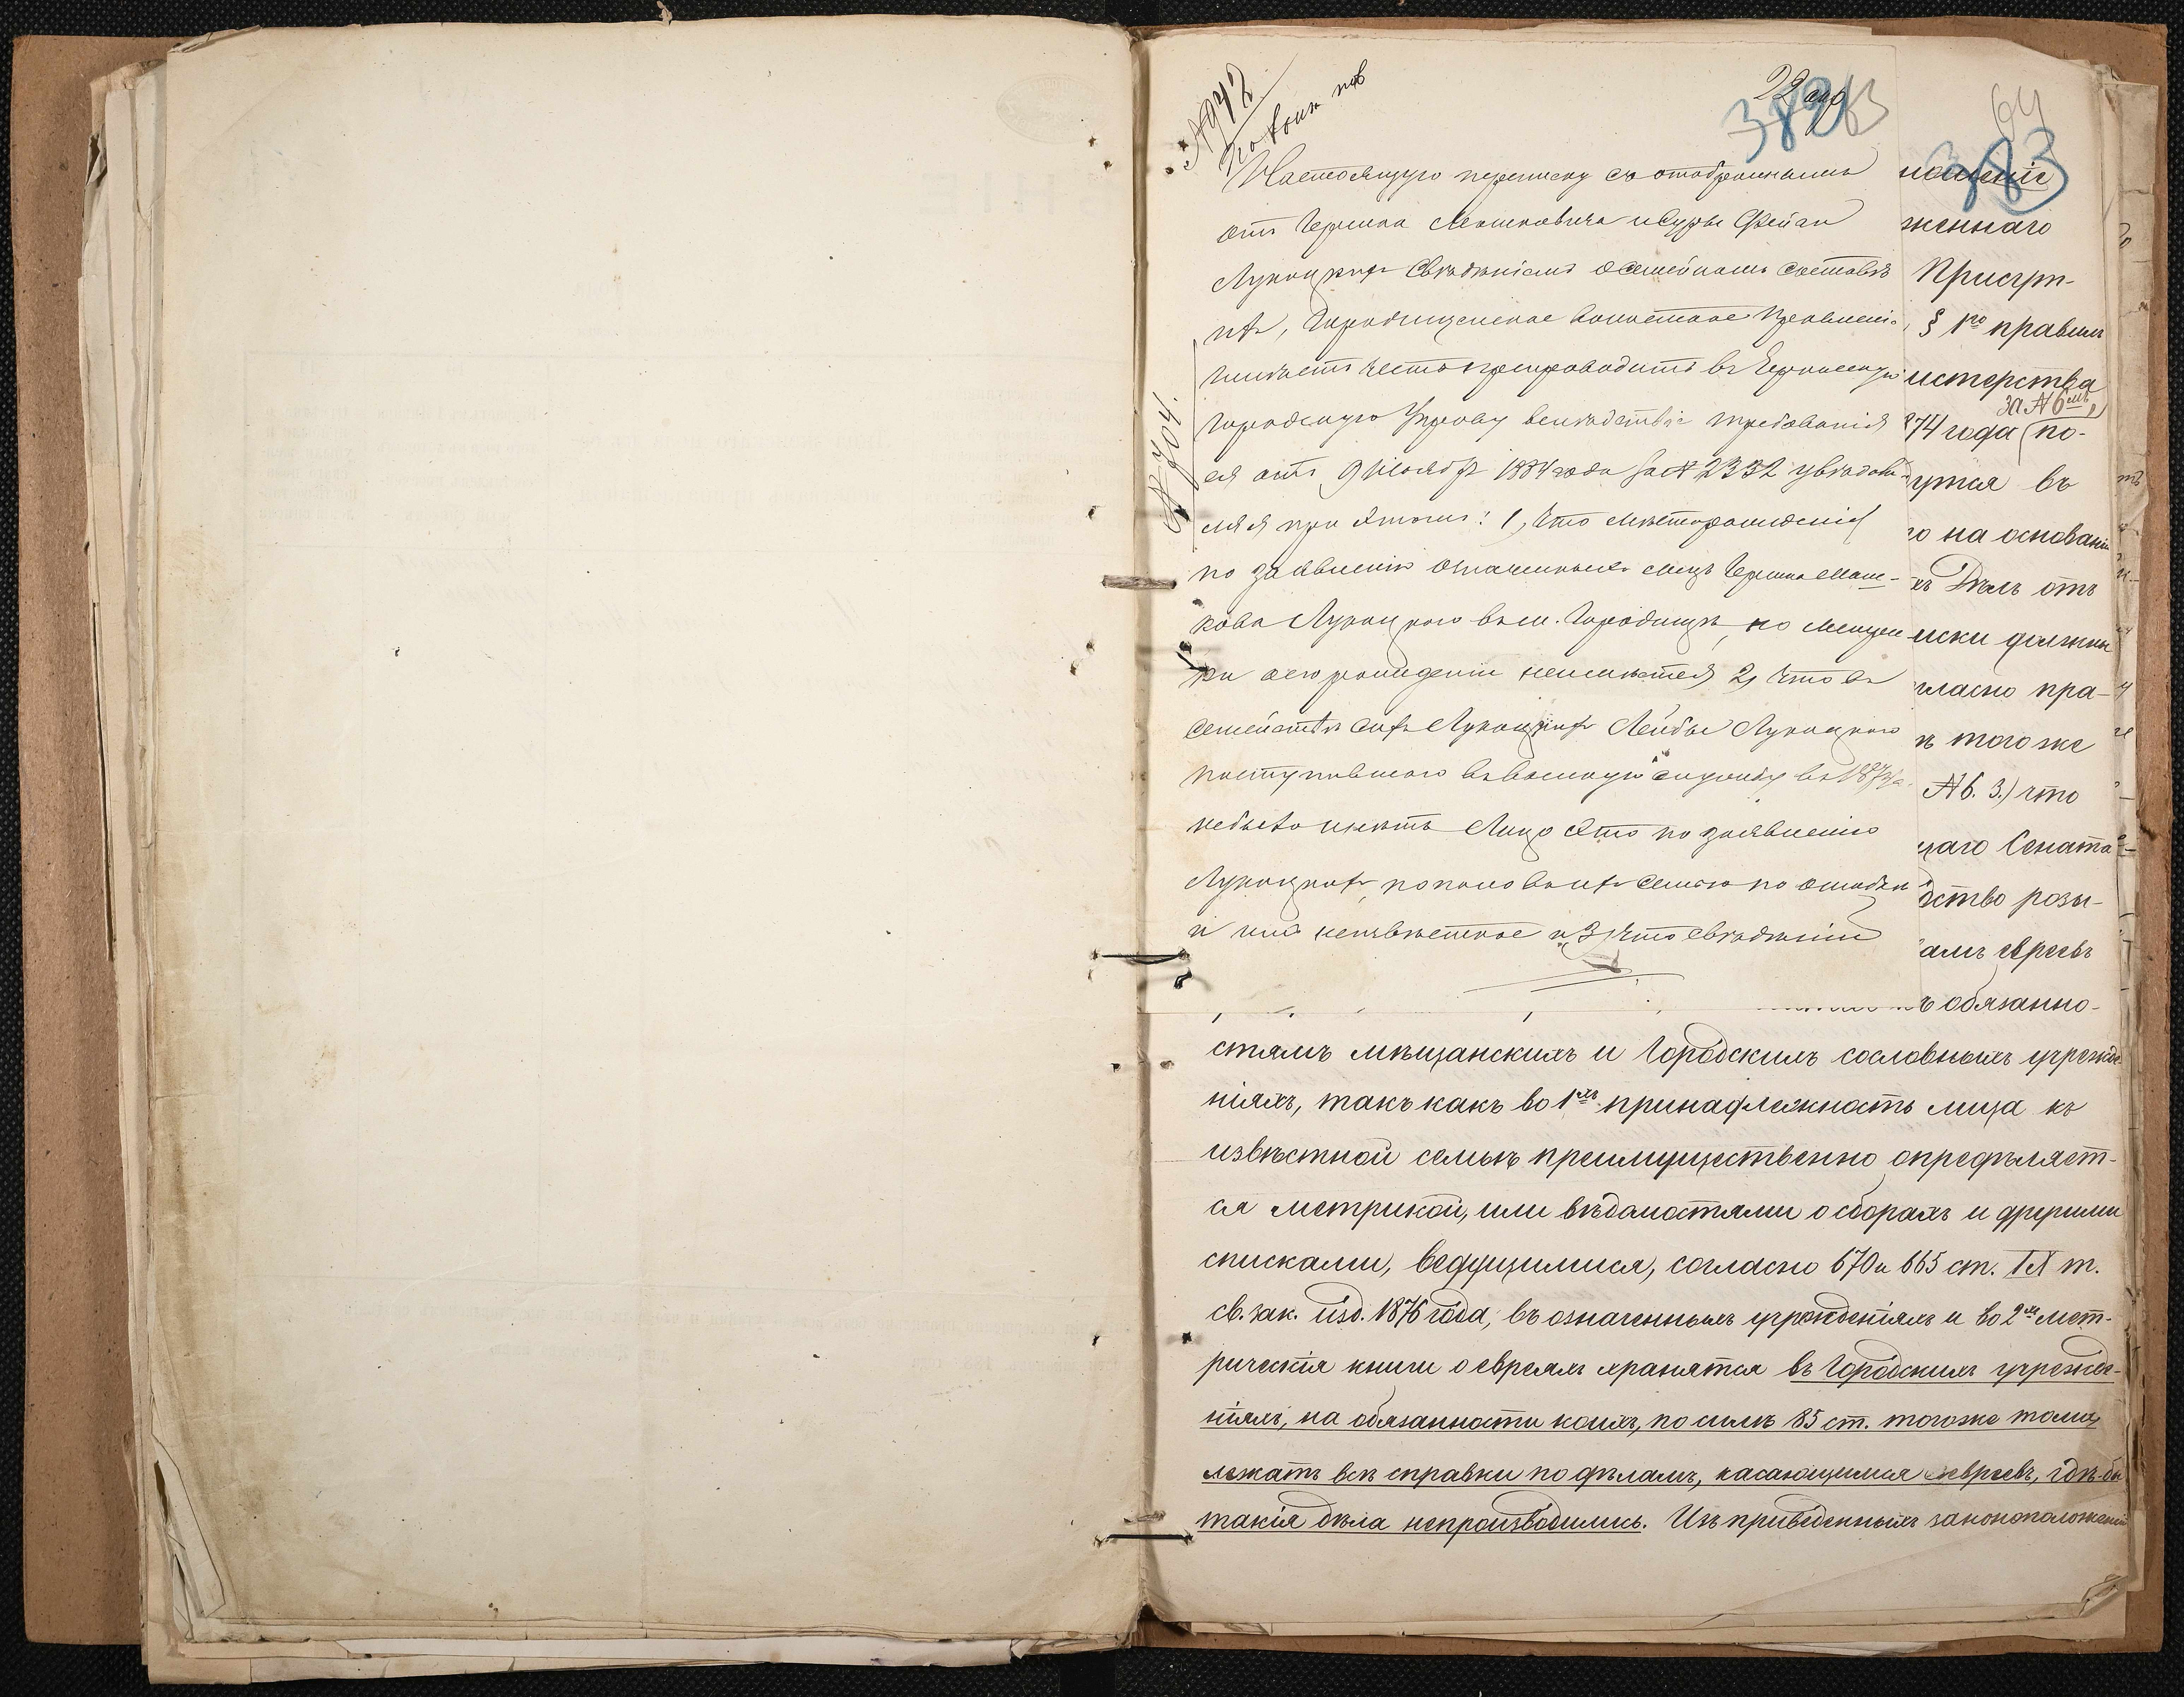 № 942
22 апр
382
63
64
383
№ 704.
Настоящую переписку съ отобраннымъ
отъ Гершка Мошковича и Суры Фейги
Лукацкихъ сведениемъ о семейномъ составе
ихъ, Городищенское Волостное Правленіе
имѣетъ честь препроводить въ Черкасскую
Городскую Управу вслѣдствіе требованія
ея отъ 9 Ноября 1884 года за № 2332 увѣдом-
ляя при этомъ: 1, что мѣсторожденія
по заявленію означенныхъ лицъ Гершка Мош-
кова Лукацкого въ м. Городище, но метри-
ки о его рожденіи неимѣется 2, что въ
семействе сихъ Лукацкихъ Лейбы Лукацкого
поступившаго въ военную службу въ 187
небыло и нетъ Лицо это по заявленію
Лукацкихъ, показано въ ихъ семью по ошибке
и имъ неизвѣстное и 3, что свѣдѣнія
ноженіе
женнаго
Присут-
§ 1го правилъ
истерства
за № 6мъ,
874 года (по-
утся въ
го на основаніи
хъ Делъ отъ
иски должны
гласно пра-
ъ тогоже
№ 6. 3.) что
щаго Сената
дство розы-
камъ евреевъ
ъ обязанно-
стямъ мѣщанскихъ и городскихъ сословныхъ учрежде-
ніяхъ, такъ какъ во 1хъ принадлежность лица къ
извѣстной семьѣ преимущественно опредѣляет-
ся метрикой, или вѣдомостями о сборахъ и другими
списками, ведущимися, согласно 670 и 665 ст. IX т.
св. зак. изд. 1876 года, въ означенныхъ учрежденіяхъ и во 2хъ мет-
рическія книги о евреяхъ хранятся въ городскихъ учрежде-
ніяхъ, на обязанности коихъ, по силѣ 85 ст. тогоже тому
лежатъ всѣ справки по дѣламъ, касающимся евреевъ, гдѣ-бы
такія дѣла непроизводились. Изъ приведенныхъ законоположеній